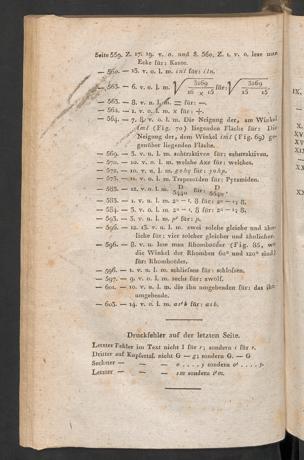 Seite 559. Z. 17. 19. v. o. und S. 560. Z. 1. v. o. lese man
Ecke für: Kante.
— 560. — 15. v. o. l. m. int für: itn.
— 563. — 6. v. o. l. m. √ 3269 / 16 × 15 für: √ 3269 / 15 15
— 563. — 8. v. u. l. m. = für: —.
— 564. — 2. v. o. l. m. × für: +.
— 564. — 7. 8. v. o. l. m. Die Neigung der, am Winkel
(Fig. 70) liegenden Fläche für: Die
Neigung der, dem Winkel (Fig. 69) ge-
genüber liegenden Fläche.
— 569. — 3. v. u. l. m. subtraktiven für: substraktiven.
— 570. — 10. v. u. l. m. welche Axe für: welches.
— 572. — 10. v. u. l. m. für:
— 575. — v. u. l. m. Trapezoiden für: Pyramiden.
— 583. — 12. v. o. l. m. D für: D
— 583. — 1. v. u. l. m. für:
— 584. — 3. v. o. l. m. für:
— 593. — 3. v. u. l. m. für:
— 596. — 12. 13. v. u. l. m. zwei solche gleiche und ähn-
liche für: vier solcher gleicher und ähnlicher.
— 596. — 8. v. u. lese man Rhomboëder (Fig. 85, wo
die Winkel der Rhomben 60° und 120° sind)
für: Rhomboëder.
— 596. — 1. v. u. l. m. schliessen für: schlossen.
— 597. — 9. v. u. l. m. sechs für: zwölf.
— 601. — 10. v. u. l. m. die ihn umgebenden für: das ihn
umgebende.
— 603. — 14. v. o. l. m. für:
Druckfehler auf der letzten Seite.
Letzter Fehler im Text nicht I für r; sondern i für r.
Dritter auf Kupfertaf. nicht G — g; sondern G. — G
Sechster — — — sondern
Letzter — — — sondern